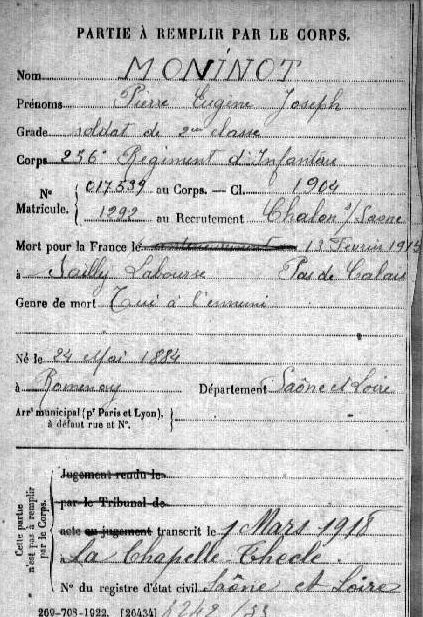 PARTIE À REMPLIR PAR LE CORPS.
Nom MONINOT
Prénoms Pierre Eugène Joseph
Grade soldat de 2me classe
Corps 256e Régiment d'Infanterie
Nº Matricule. { 017539 au Corps. — Cl. 1904
1292 au Recrutement Chalon s/ Saone
Mort pour la France le 13 Fevrier 1915
à Sailly Labourse Pas de Calais
Genre de mort Tué à l'ennemi
Né le 24 Mai 1884
à Romenay Département Saône et Loire
Arrt municipal (pr Paris et Lyon), à défaut rue et Nº. }
Cette partie n'est pas à remplir par le Corps.
Jugement rendu le
par le Tribunal de
acte ou jugement transcrit le 1 Mars 1918
La Chapelle Thecle
Nº du registre d'état civil Saône et Loire
269-708-1922. [26434]